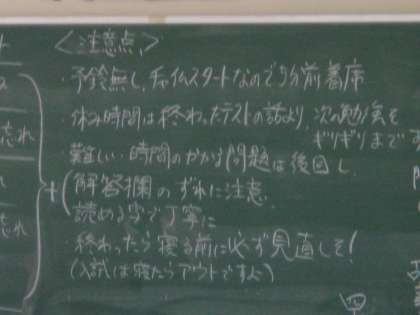 <注意点>
・予鈴無し、チャイムスタートなので5分前着席
・休み時間は終わったテストの話より、次の勉強を
ギリギリまで
難しい・時間のかかる問題は後回し
解答欄のずれに注意
読める字で丁寧に
・終わったら寝る前に必ず見直しを!
(入試は寝たらアウトですよ~)
忘れ
れ
忘れ